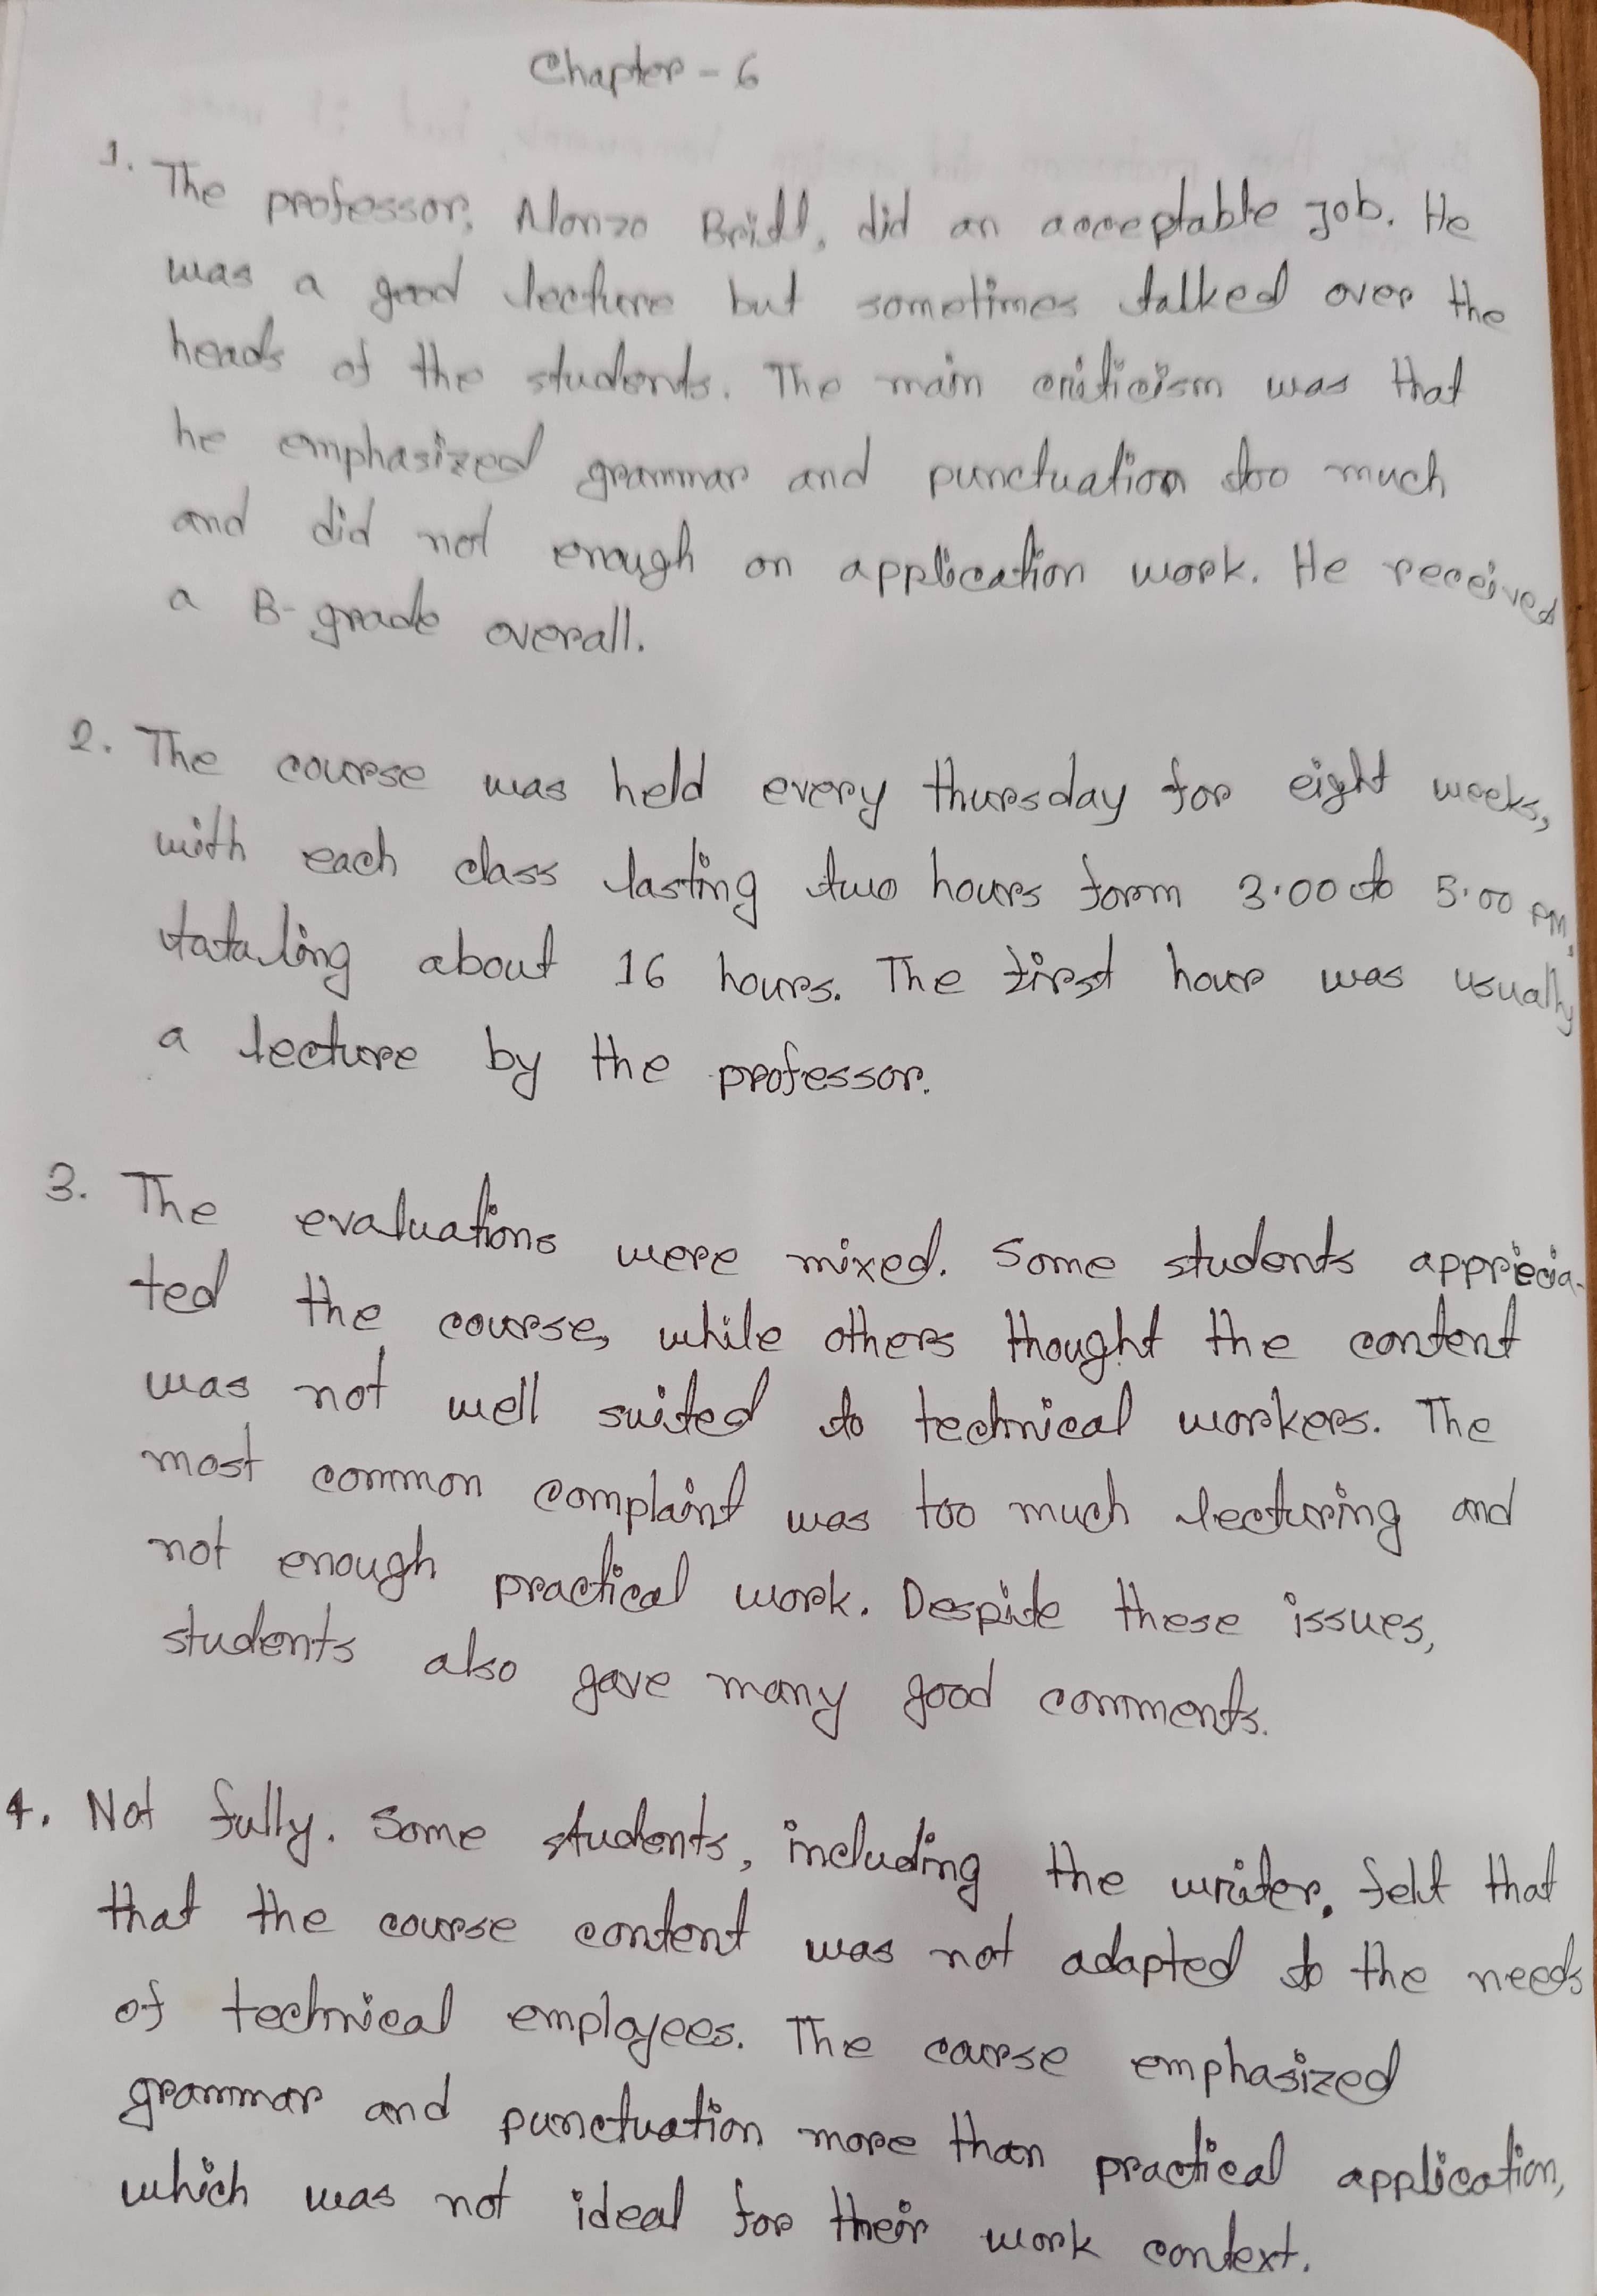 Chapter - 6
1. The professor, Alonzo Bridl, did an acceptable job. He
was a good lecture but sometimes talked over the
heads of the students. The main criticism was that
he emphasized grammar and punctuation too much
and did not enough on application work. He received
a B- grade overall.
2. The course was held every thursday for eight weeks,
with each class lasting two hours form 3.00 to 5.00 PM,
tataling about 16 hours. The first hour was usually
a lecture by the professor.
3. The evaluations were mixed. Some students apprecia-
ted the course, while others thought the content
was not well suited to technical workers. The
most common complaint was too much lecturing and
not enough practical work. Despite these issues,
students also gave many good comments.
4. Not fully. Some students, including the writer, felt that
that the course content was not adapted to the needs
of technical employees. The course emphasized
grammar and punctuation more than practical application,
which was not ideal for their work context.